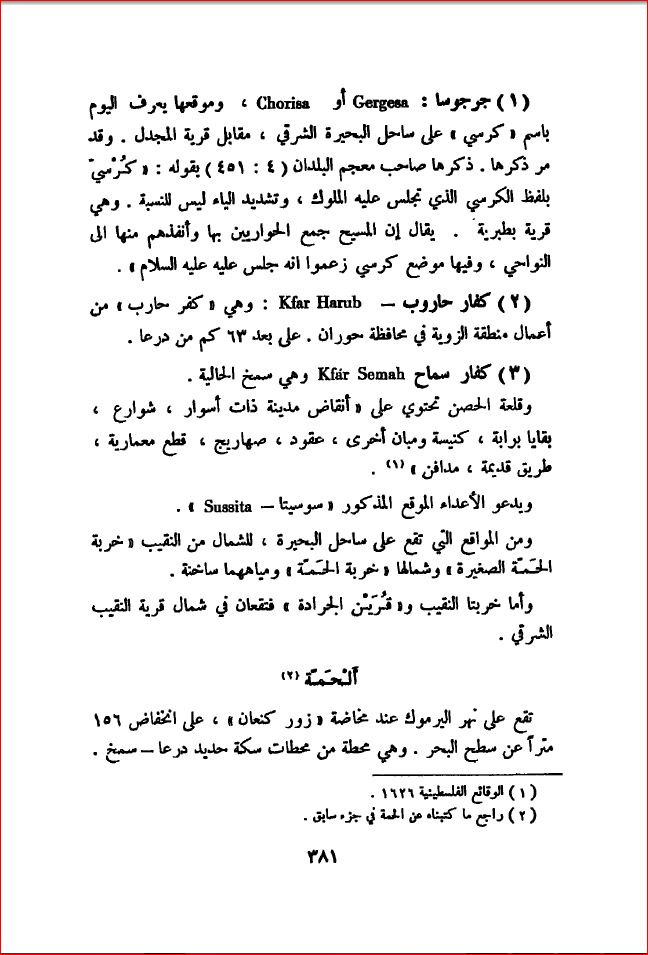 (١) جرجوسا : Gergesa أو Chorisa ، وموقعها يعرف اليوم
باسم « كرسي » على ساحل البحيرة الشرقي ، مقابل قرية المجدل . وقد
مر ذكرها . ذكرها صاحب معجم البلدان ( ٤ : ٤٥١ ) بقوله : « كُرْسيّ
بلفظ الكرسي الذي تجلس عليه الملوك ، وتشديد الياء ليس للنسبة . وهي
قرية بطبرية . يقال إن المسيح جمع الحواريين بها وأنفذهم منها الى
النواحي ، وفيها موضع كرسي زعموا انه جلس عليه عليه السلام » .
(٢) كفار حاروب – Kfar Harub : وهي « كفر حارب » من
أعمال منطقة الزوية في محافظة حوران . على بعد ٦٣ كم من درعا .
(٣) كفار سماح Kfár Semah وهي سمخ الحالية .
وقلعة الحصن تحتوي على « أنقاض مدينة ذات أسوار ، شوارع ،
بقايا برابة ، كنيسة ومبان أخرى ، عقود ، صهاريج ، قطع معمارية ،
طريق قديمة ، مدافن » (١) .
ويدعو الأعداء الموقع المذكور « سوسيتا – Sussita » .
ومن المواقع التي تقع على ساحل البحيرة ، للشمال من النقيب « خربة
الحَمـّة الصغيرة » وشمالها « خربة الحَمـّة » ومياههما ساخنة .
وأما خربتا النقيب و« قُرَيـْن الجرادة » فتقعان في شمال قرية النقيب
الشرقي .
ألْحَمـّة (٢)
تقع على نهر اليرموك عند مخاضة « زور كنعان » ، على انخفاض ١٥٦
متراً عن سطح البحر . وهي محطة من محطات سكة حديد درعا – سمخ .
(١) الوقائع الفلسطينية ١٦٢٦ .
(٢) راجع ما كتبناه عن الحمة في جزء سابق .
٣٨١